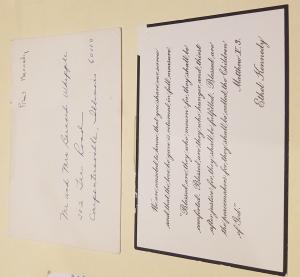 Kennedy
Mr and Mrs Whipple
Road
Carpentersville Illinois 60110
We are consoled to know that you share our sorrow
and that the love he gave is returned in full measure.
"Blessed are they who mourn for they shall be
comforted. Blessed are they who hunger and thirst
after justice for they shall be fulfilled. Blessed are
the peacemakers for they shall be called the Children
of God."
Matthew
Ethel Kennedy